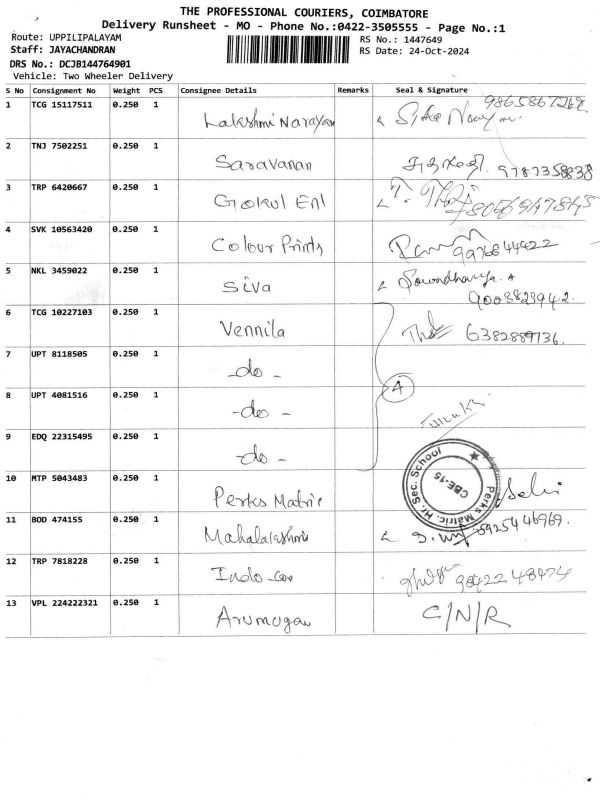 THE PROFESSIONAL COURIERS, COIMBATORE
Delivery Runsheet - MO - Phone No.:0422-3505555 - Page No.:1
Route: UPPILIPALAYAM RS No.: 1447649
Staff: JAYACHANDRAN RS Date: 24-Oct-2024
DRS No.: DCJB144764901
Vehicle: Two Wheeler Delivery
S No Consignment No Weight PCS Consignee Details Remarks Seal & Signature
1 TCG 15117511 0.250 1 Lakshmi Narayan
2 TNJ 7502251 0.250 1 Saravanan 9787358838
3 TRP 6420667 0.250 1 Gokul Enl
4 SVK 10563420 0.250 1 Colour Prints 9976844422
5 NKL 3459022 0.250 1 Siva Sowndharya. A
9003823942.
6 TCG 10227103 0.250 1 Vennila 6382889736.
7 UPT 8118505 0.250 1 -do-
8 UPT 4081516 0.250 1 -do- 4
9 EDQ 22315495 0.250 1 -do-
Perks Matric. Hr. Sec. School
CBE-15
10 MTP 5043483 0.250 1 Perks Matric
11 BOD 474155 0.250 1 Mahalakshmi
12 TRP 7818228 0.250 1 Indo-
13 VPL 224222321 0.250 1 Arumugam C/N/R